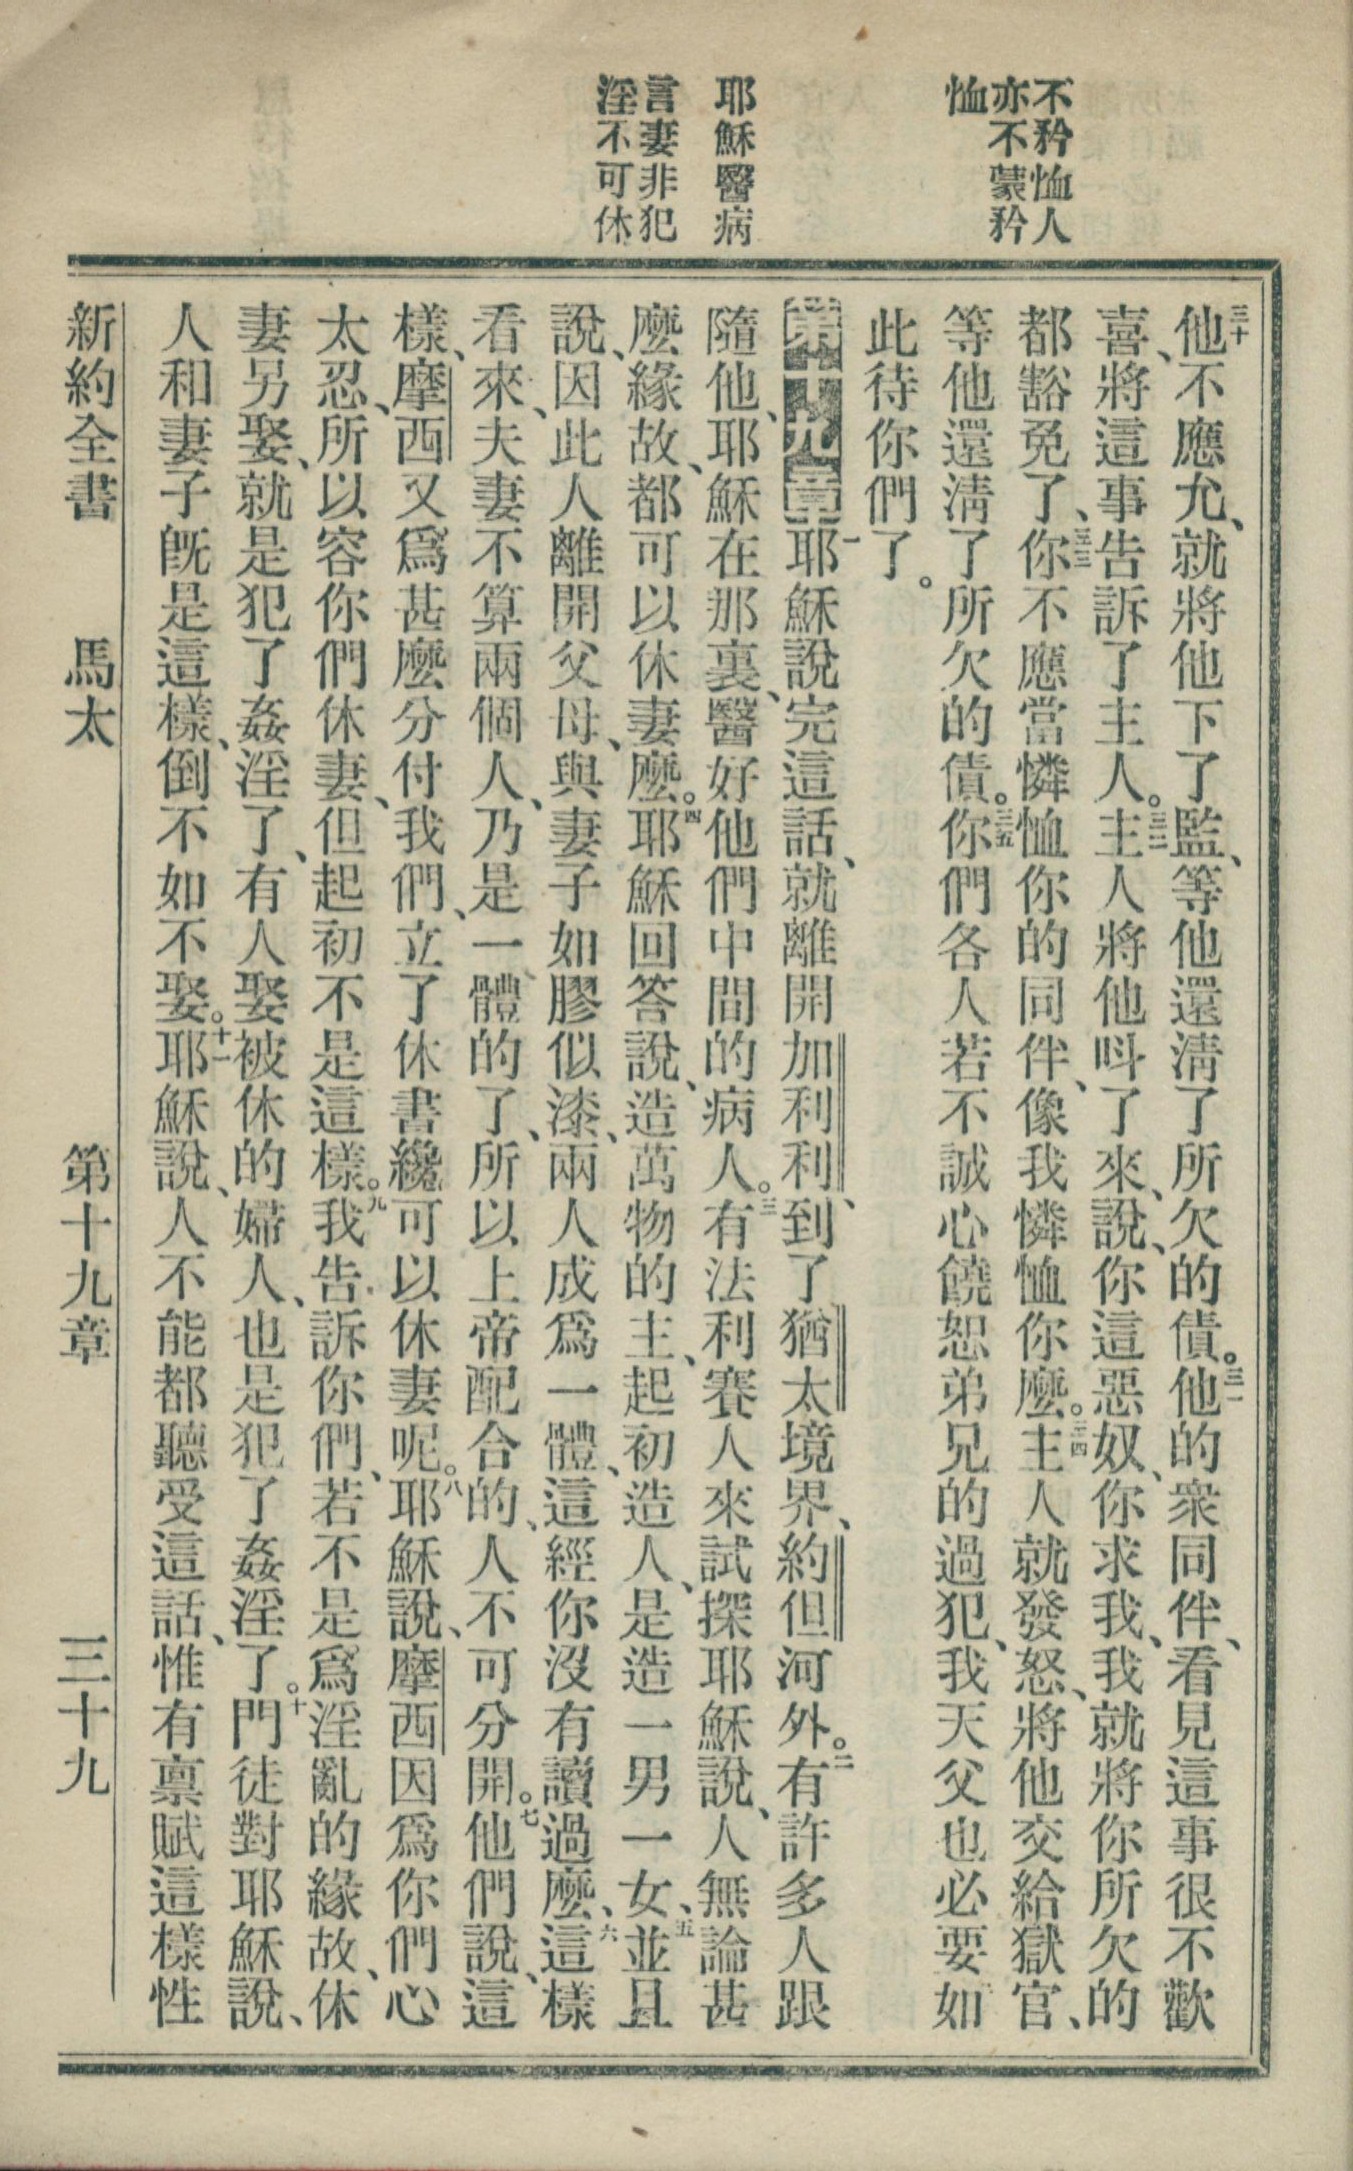 不矜恤人
亦不蒙矜
恤
耶穌醫病
言妻非犯
淫不可休
三十他不應允、就將他下了監、等他還淸了所欠的債。三一他的衆同伴、看見這事很不歡
喜、將這事告訴了主人。三二主人將他呌了來、說、你這惡奴、你求我、我就將你所欠的
都豁免了、三三你不應當憐恤你的同伴、像我憐恤你麼。三四主人就發怒、將他交給獄官、
等他還淸了所欠的債。三五你們各人若不誠心饒恕弟兄的過犯、我天父也必要如
此待你們了。
第十九章一耶穌說完這話、就離開加利利、到了猶太境界、約但河外。二有許多人跟
隨他、耶穌在那裏、醫好他們中間的病人。三有法利賽人來試探耶穌說、人無論甚
麼緣故、都可以休妻麼。四耶穌回答說、造萬物的主、起初造人、是造一男一女、五並且
說、因此人離開父母、與妻子如膠似漆、兩人成爲一體、這經你沒有讀過麼、六這樣
看來、夫妻不算兩個人、乃是一體的了、所以上帝配合的、人不可分開。七他們說、這
樣、摩西又爲甚麼分付我們、立了休書纔可以休妻呢。八耶穌說、摩西因爲你們心
太忍、所以容你們休妻、但起初不是這樣。九我告訴你們、若不是爲淫亂的緣故、休
妻另娶、就是犯了姦淫了、有人娶被休的婦人、也是犯了姦淫了。十門徒對耶穌說、
人和妻子旣是這樣、倒不如不娶。十一耶穌說、人不能都聽受這話、惟有禀賦這樣性
新約全書 馬太 第十九章 三十九